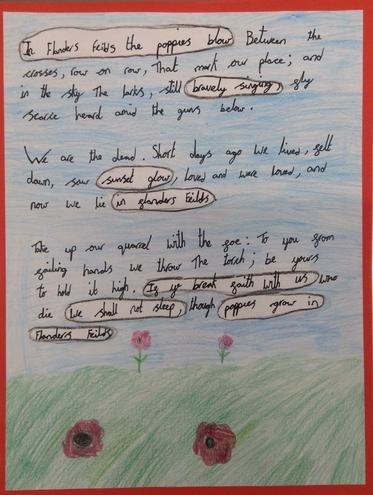 In Flanders Feilds the poppies blow Between the
crosses, row on row, That mark our place; and
in the sky The larks, still bravely singing, fly
scarce heard amid the guns below.
We are the dead. Short days ago We lived, felt
down, saw sunset glow, loved and were loved, and
now we lie in flanders Feilds
Take up our quarrel with the foe: To you from
failing hands we throw The torch; be yours
to hold it high. If ye break faith with us who
die We shall not sleep, though poppies grow in
Flanders Feilds